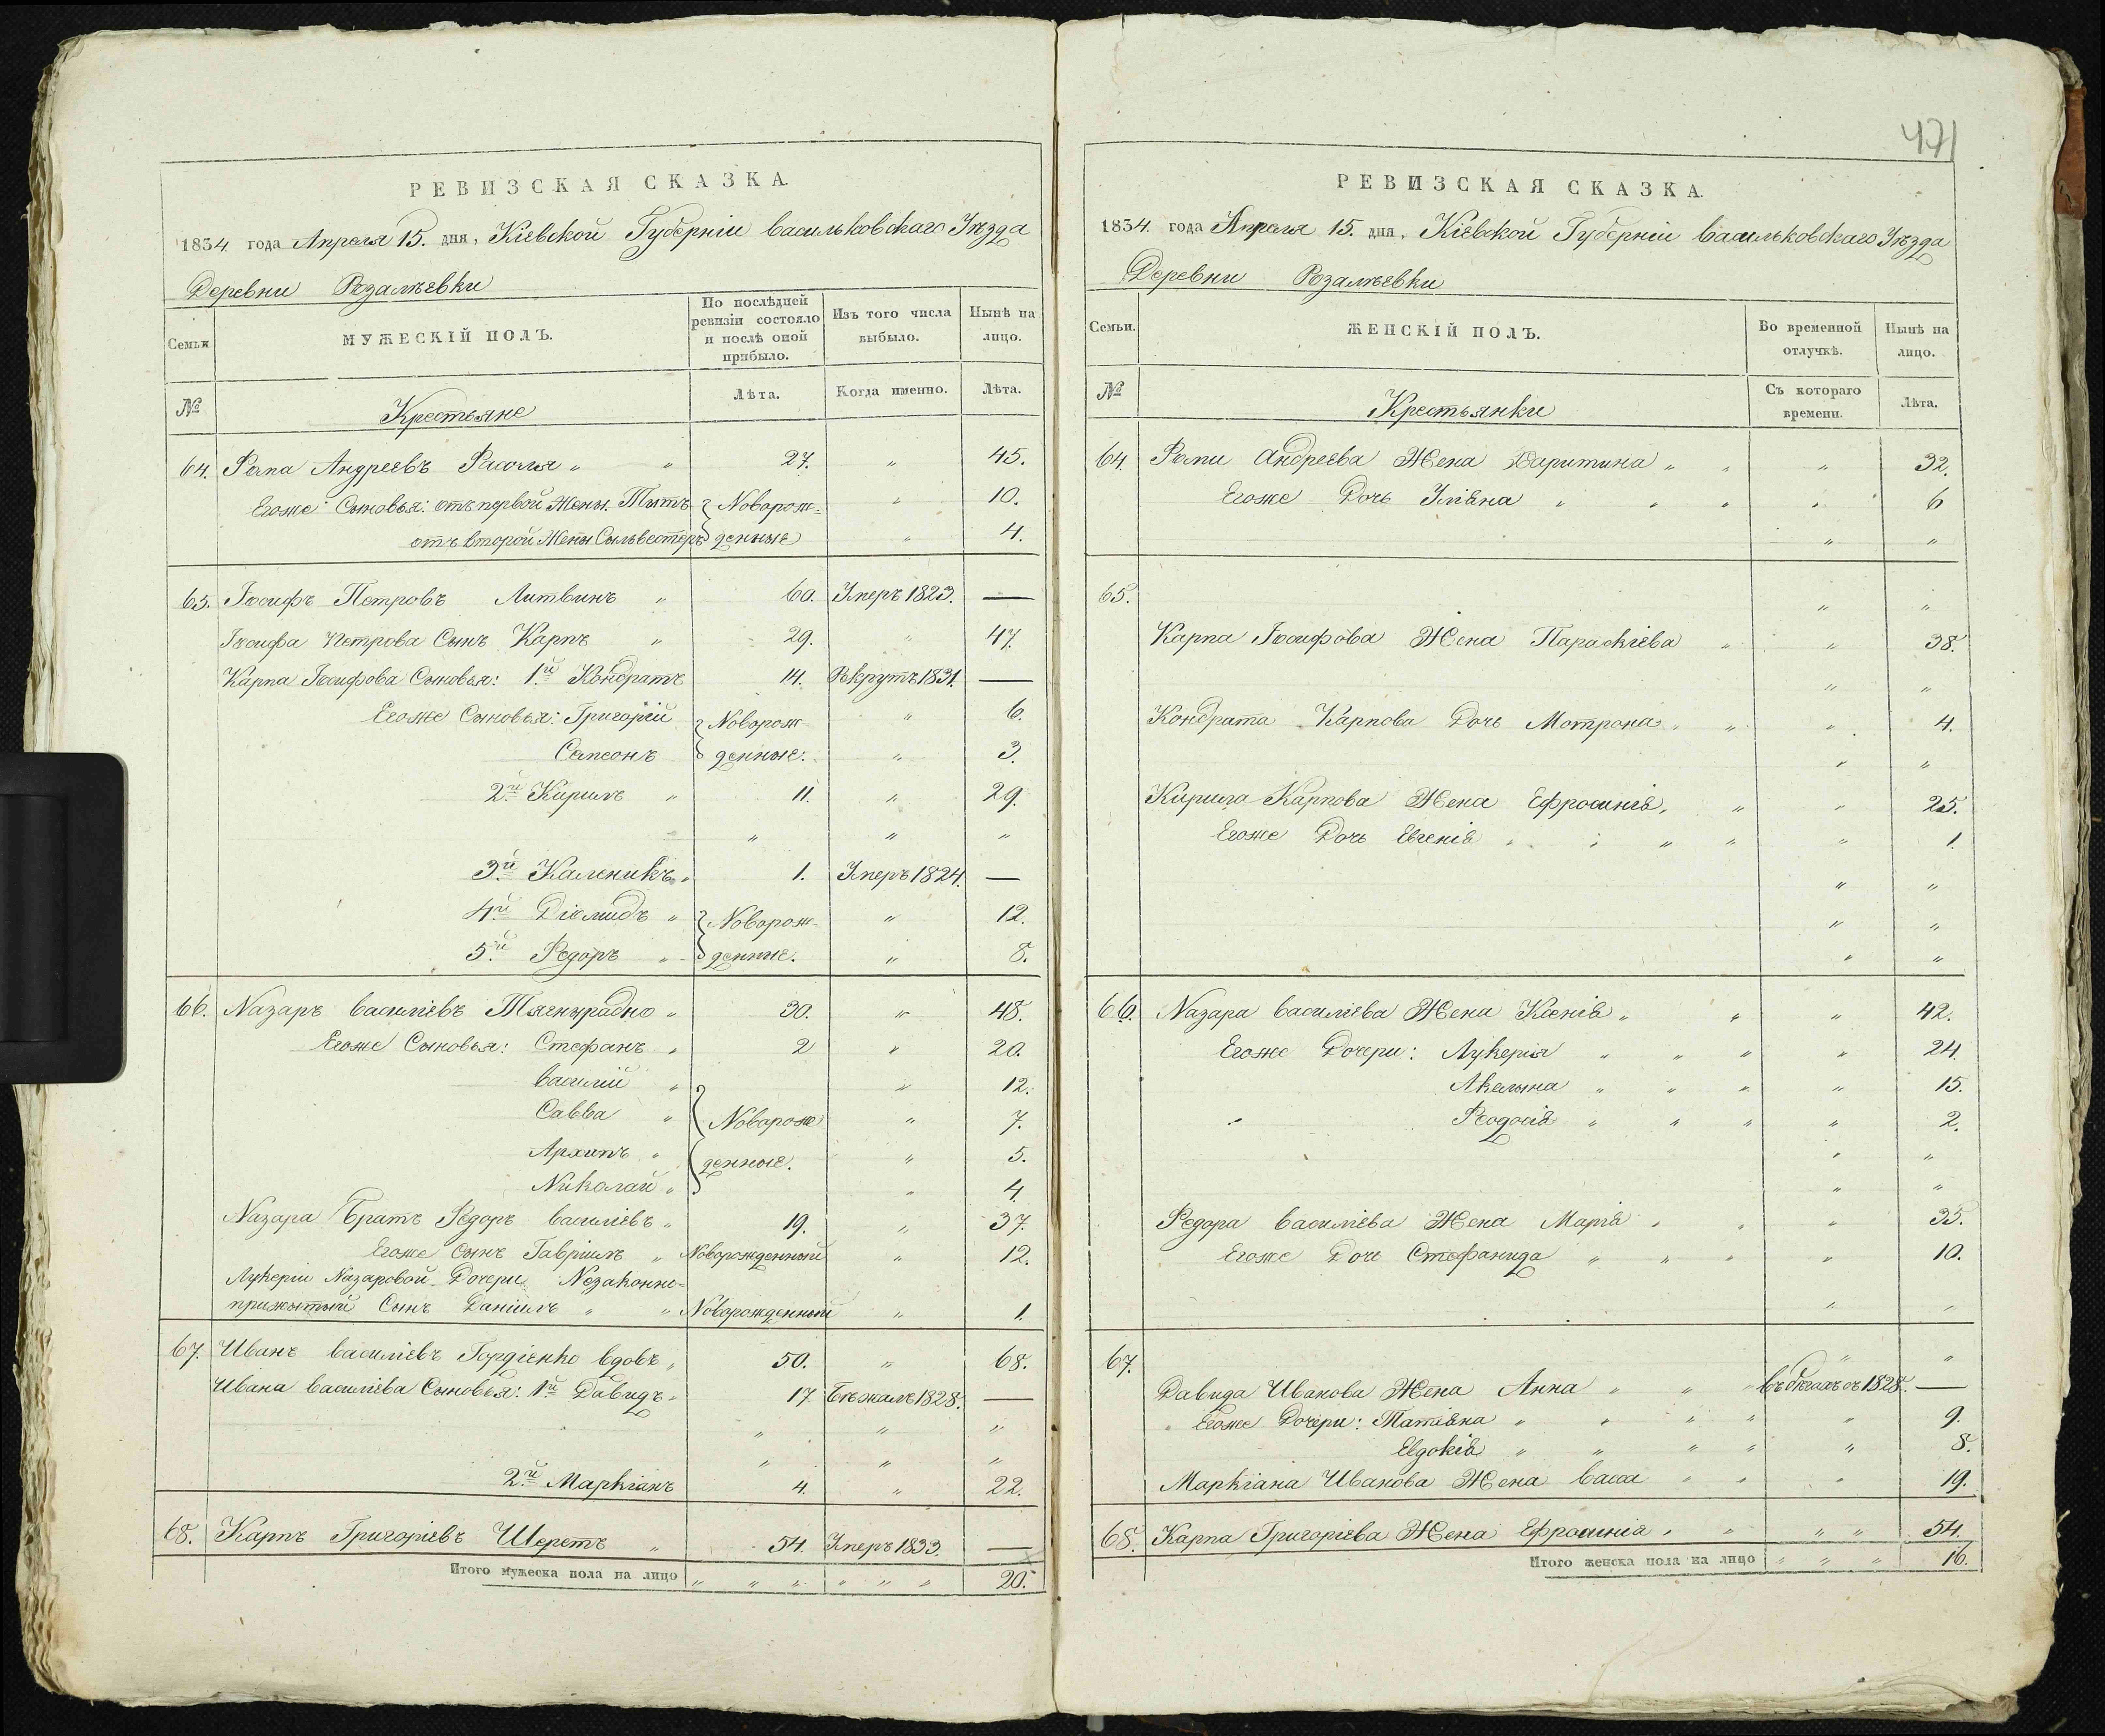 РЕВИЗСКАЯ СКАЗКА.
1834 года Апреля 15. дня, Кіевской Губерніи васильковскаго Уѣзда
Деревни Розалѣевки
Семьи
МУЖЕСКІЙ ПОЛЪ.
По послѣдней ревизіи состояло и послѣ оной прибыло.
Изъ того числа выбыло.
Нынѣ на лицо.
№
Крестьяне
Лѣта.
Когда именно.
Лѣта.
64. Фома Андреевъ " " 27. " 45.
Егоже Сыновья: отъ первой Жены Тытъ Новорож- " 10.
отъ второй Жены Сыльвестеръ денные " 4.
65. Іосифъ Петровъ Литвинъ " 60. Умеръ 1823. —
Іосифа Петрова Сынъ Карпъ " 29. " 47.
Карпа Іосифова Сыновья: 1й Кондратъ 14. Рекрутъ 1831. —
Егоже Сыновья: Григорій Новорож- " 6.
Сапсонъ денные. " 3.
2й Кирилъ " 11. " 29.
" " "
3й Каленикъ " 1. Умеръ 1824. —
4й Діомидъ " Новорож- " 12.
5й Федоръ " денные. " 8.
66. Назаръ василіевъ " 30. " 48.
Егоже Сыновья: Стефанъ " 2 " 20.
василій " " 12.
Савва " Новорож " 7.
Архипъ " денные. " 5.
Николай " " 4.
Назара Братъ Федоръ василіевъ " 19. " 37.
Егоже сынъ Гавріилъ " Новорожденный " 12.
Лукеріи Назаровой Дочери Незаконно-
прижытый Сынъ Даніилъ " " Новорожденный " 1.
67. Иванъ василіевъ Гордіенко вдовъ " 50. " 68.
Ивана василіева Сыновья: 1й Давидъ " 17. Бѣжалъ 1828. —
" " "
" " "
2й Маркіанъ 4. " 22.
68. Карпъ Григоріевъ Шереметъ " 54. Умеръ 1833. —
Итого мужеска пола на лицо " " " " " " 20.
471
РЕВИЗСКАЯ СКАЗКА.
1834. года Апреля 15. дня, Кіевской Губерніи васильковскаго Уѣзда
Деревни Розалѣевки
Семьи.
ЖЕНСКІЙ ПОЛЪ.
Во временной отлучкѣ.
Нынѣ на лицо.
№
Крестьянки
Съ котораго времени.
Лѣта.
64. Фомы Андреева Жена Харитина " " " 32.
Егоже Дочь Уліяна " " " " 6
" "
65. " "
Карпа Іосифова Жена Параскіева " " 38.
" "
Кондрата Карпова Дочь Мотрона " " " 4.
" "
Кирила Карпова Жена Ефросинія " " " 25.
Егоже Дочь Евгенія " " " " " 1.
" "
" "
" "
66. Назара василіева Жена Ксенія " " " 42.
Егоже Дочери: Лукерія " " " " 24.
Акелына " " " " 15.
Феодосія " " " " 2.
" "
" "
Федора василіева Жена Марія " " " 35.
Егоже Дочь Стефанида " " " " 10.
" "
67. " "
Давида Иванова Жена Анна " " " въ бѣгахъ съ 1828. —
Егоже Дочери: Татіяна " " " " " 9.
Евдокія " " " " " 8.
Маркіана Иванова Жена васса " " " 19.
68. Карпа Григоріева Жена Ефросинія " " " " 54.
Итого женска пола на лицо " " " 16.